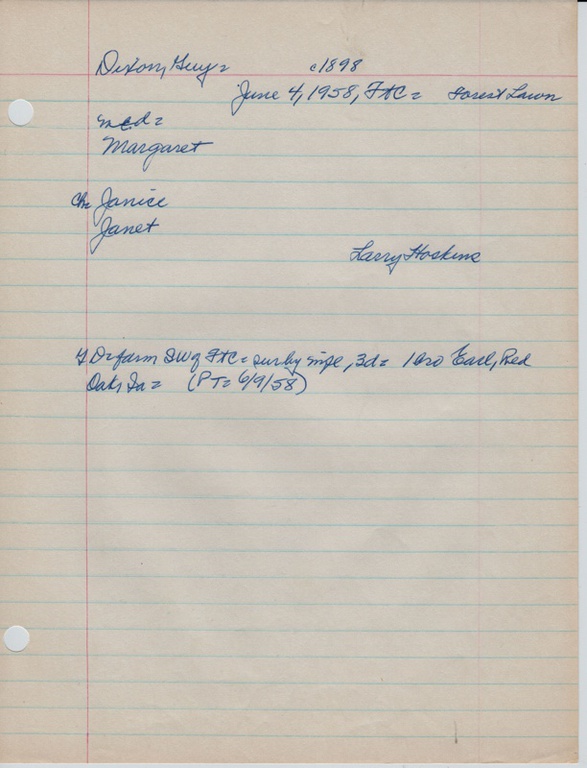 Dixon, Guy = c1898
June 4, 1958, FtC = Forest Lawn
mcd =
Margaret
Ch = Janice
Janet
Larry Hoskins
farm SW of FtC = sur by wife, 3d = 1 bro Earl, Red
Oak, Ia = (PT = 6/9/58)